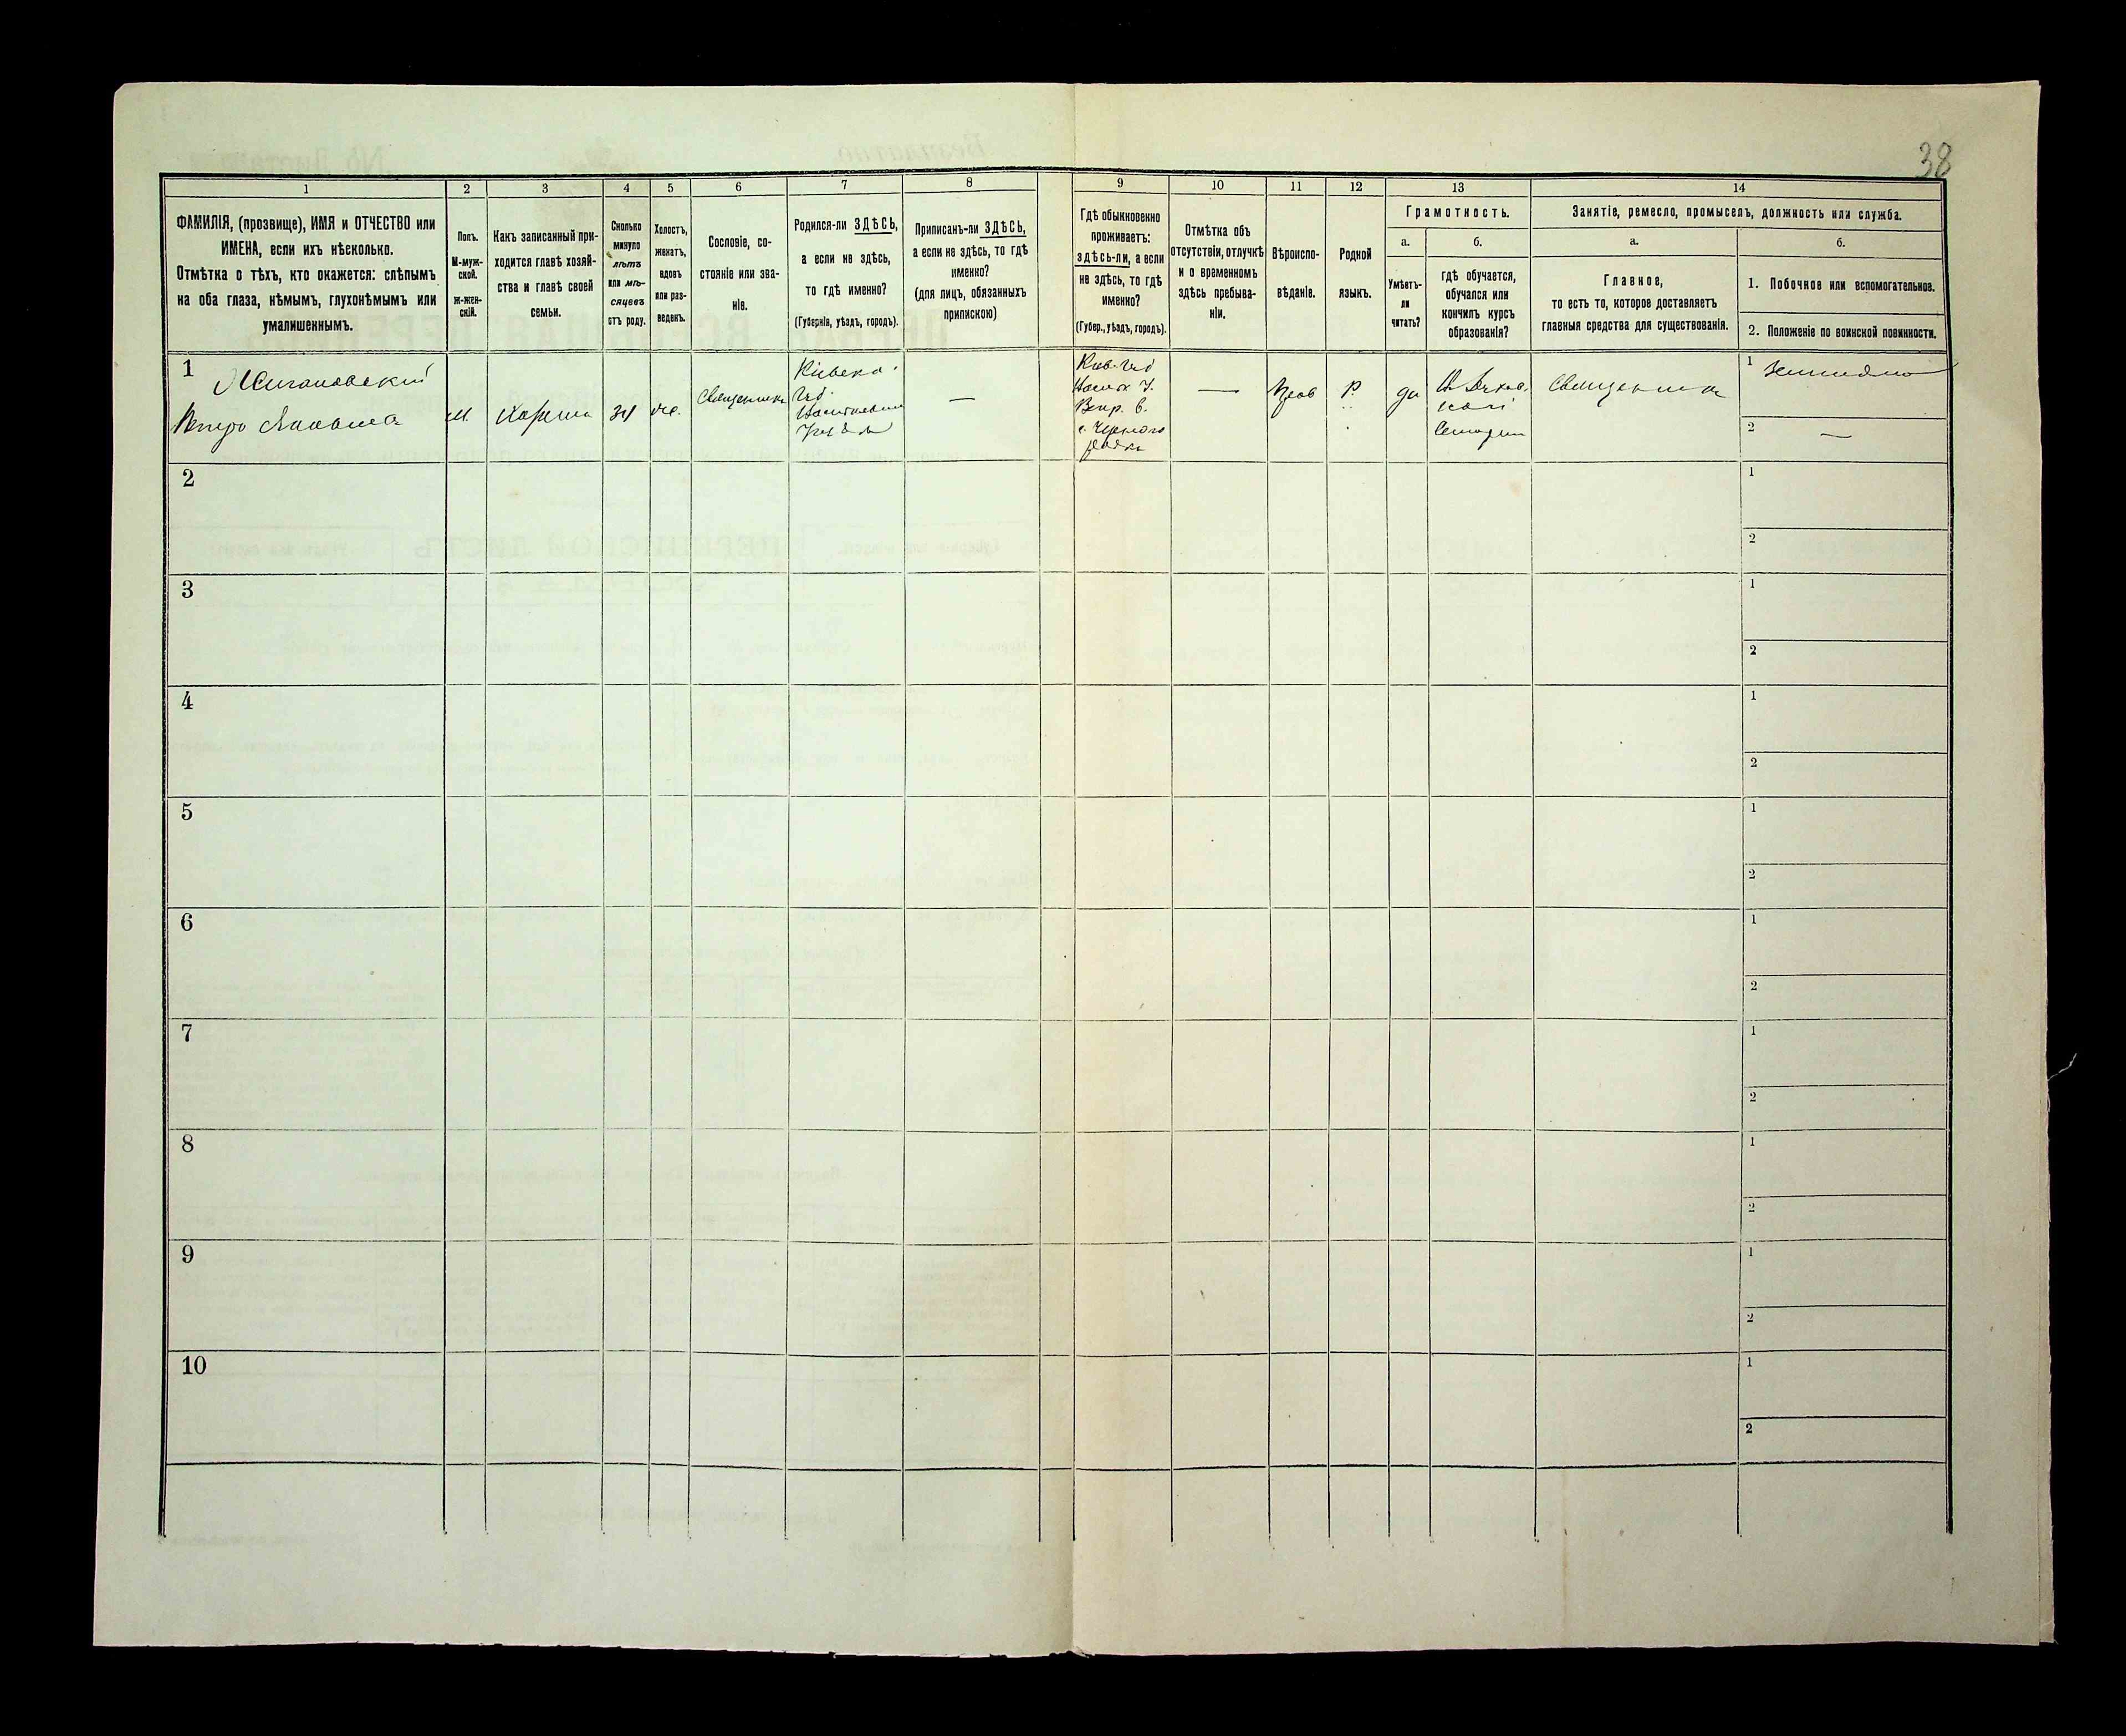 38
1
2
3
4
5
6
7
8
9
10
11
12
13
14
ФАМИЛІЯ, (прозвище), ИМЯ и ОТЧЕСТВО или
ИМЕНА, если ихъ нѣсколько.
Отмѣтка о тѣхъ, кто окажется: слѣпымъ
на оба глаза, нѣмымъ, глухонѣмымъ или
умалишеннымъ.
Полъ.
М-муж-
ской.
ж-жен-
скій.
Какъ записанный при-
ходится главѣ хозяй-
ства и главѣ своей
семьи.
Сколько
минуло
лѣтъ
или мѣ-
сяцевъ
отъ роду.
Холостъ,
женатъ,
вдовъ
или раз-
веденъ.
Сословіе, со-
стояніе или зва-
ніе.
Родился-ли ЗДѢСЬ,
а если не здѣсь,
то гдѣ именно?
(Губернія, уѣздъ, городъ).
Приписанъ-ли ЗДѢСЬ,
а если не здѣсь, то гдѣ
именно?
(для лицъ, обязанныхъ
припискою)
Гдѣ обыкновенно
проживаетъ:
здѣсь-ли, а если
не здѣсь, то гдѣ
именно?
(Губер., уѣздъ, городъ).
Отмѣтка объ
отсутствіи, отлучкѣ
и о временномъ
здѣсь пребыва-
ніи.
Вѣроиспо-
вѣданіе.
Родной
языкъ.
Грамотность.
а.
Умѣетъ-
ли
читать?
б.
гдѣ обучается,
обучался или
кончилъ курсъ
образованія?
Занятіе, ремесло, промыселъ, должность или служба.
а.
Главное,
то есть то, которое доставляетъ
главныя средства для существованія.
б.
1. Побочное или вспомогательное.
2. Положеніе по воинской повинности.
1
Петро
м.
34
Священникъ
Кіевско
Губ.
—
—
Прав
Р.
да
Священникъ
1
2 —
2
1
2
3
1
2
4
1
2
5
1
2
6
1
2
7
1
2
8
1
2
9
1
2
10
1
2